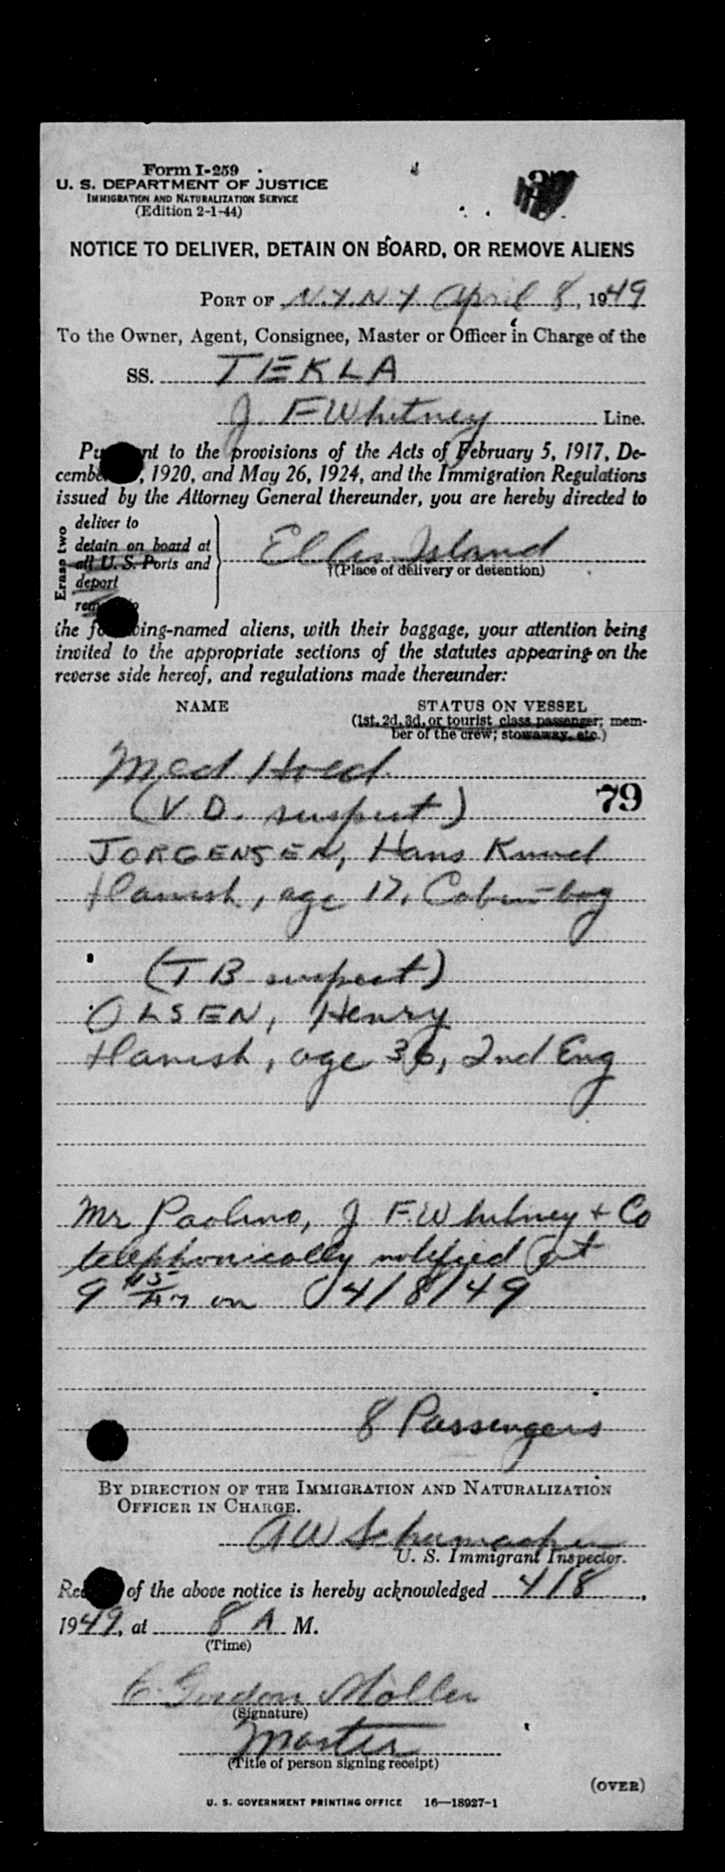 Form I-259
U. S. DEPARTMENT OF JUSTICE
IMMIGRATION AND NATURALIZATION SERVICE
(Edition 2-1-44)
NOTICE TO DELIVER, DETAIN ON BOARD, OR REMOVE ALIENS
PORT OF N.Y.N.Y. April 8, 1949
To the Owner, Agent, Consignee, Master or Officer in Charge of the
SS. TEKLA
J. F Whitney Line.
to the provisions of the Acts of February 5, 1917, De-
1920, and May 26, 1924, and the Immigration Regulations
issued by the Attorney General thereunder, you are hereby directed to
Erase two
deliver to
detain on board at
all U. S. Ports and
deport
Ellis Island
(Place of delivery or detention)
the aliens, with their baggage, your attention being
invited to the appropriate sections of the statutes appearing on the
reverse side hereof, and regulations made thereunder:
NAME STATUS ON VESSEL
(1st, 2d, 3d, or tourist class passenger; mem-
ber of the crew; stowaway, etc.)
Med Hold
79
(V.D. suspect)
JORGENSEN, Hans Knud
Danish, age 17, Cabin-boy
(TB suspect)
OLSEN, Henry
Danish, age 36, 2nd Eng
Mr Paolino, J F. Whitney + Co
telephonically notified at
9 45 AM on 4/8/49
8 Passengers
BY DIRECTION OF THE IMMIGRATION AND NATURALIZATION
OFFICER IN CHARGE.
A W Schumacher
U. S. Immigrant Inspector.
of the above notice is hereby acknowledged 4/8,
1949, at 8 A M.
(Time)
Gordon Moller
(Signature)
Master
(Title of person signing receipt)
(OVER)
U. S. GOVERNMENT PRINTING OFFICE 16—18927-1